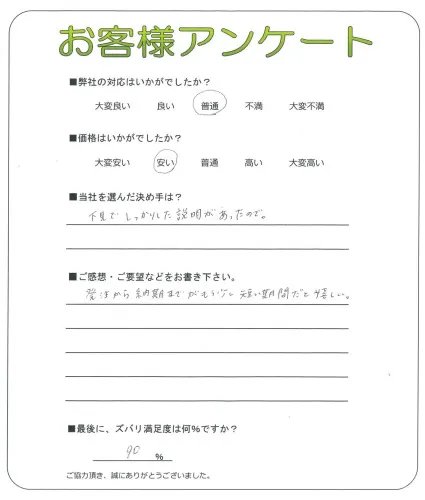 お客様アンケート
■弊社の対応はいかがでしたか？
大変良い 良い 普通 不満 大変不満
■価格はいかがでしたか？
大変安い 安い 普通 高い 大変高い
■当社を選んだ決め手は？
下見でしっかりした説明があったので。
■ご感想・ご要望などをお書き下さい。
発注から納期までがもう少し短い期間だと嬉しい。
■最後に、ズバリ満足度は何%ですか？
90 %
ご協力頂き、誠にありがとうございました。